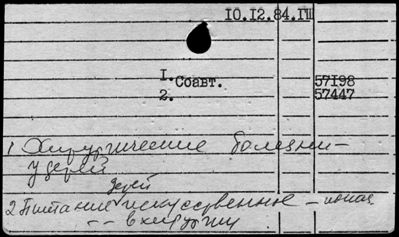 10.12.84.
1. Соавт. 57198
2. 57447
1 Хирургические болезни -
у детей
детей
2 Питание искусственное -
- - в хирургии